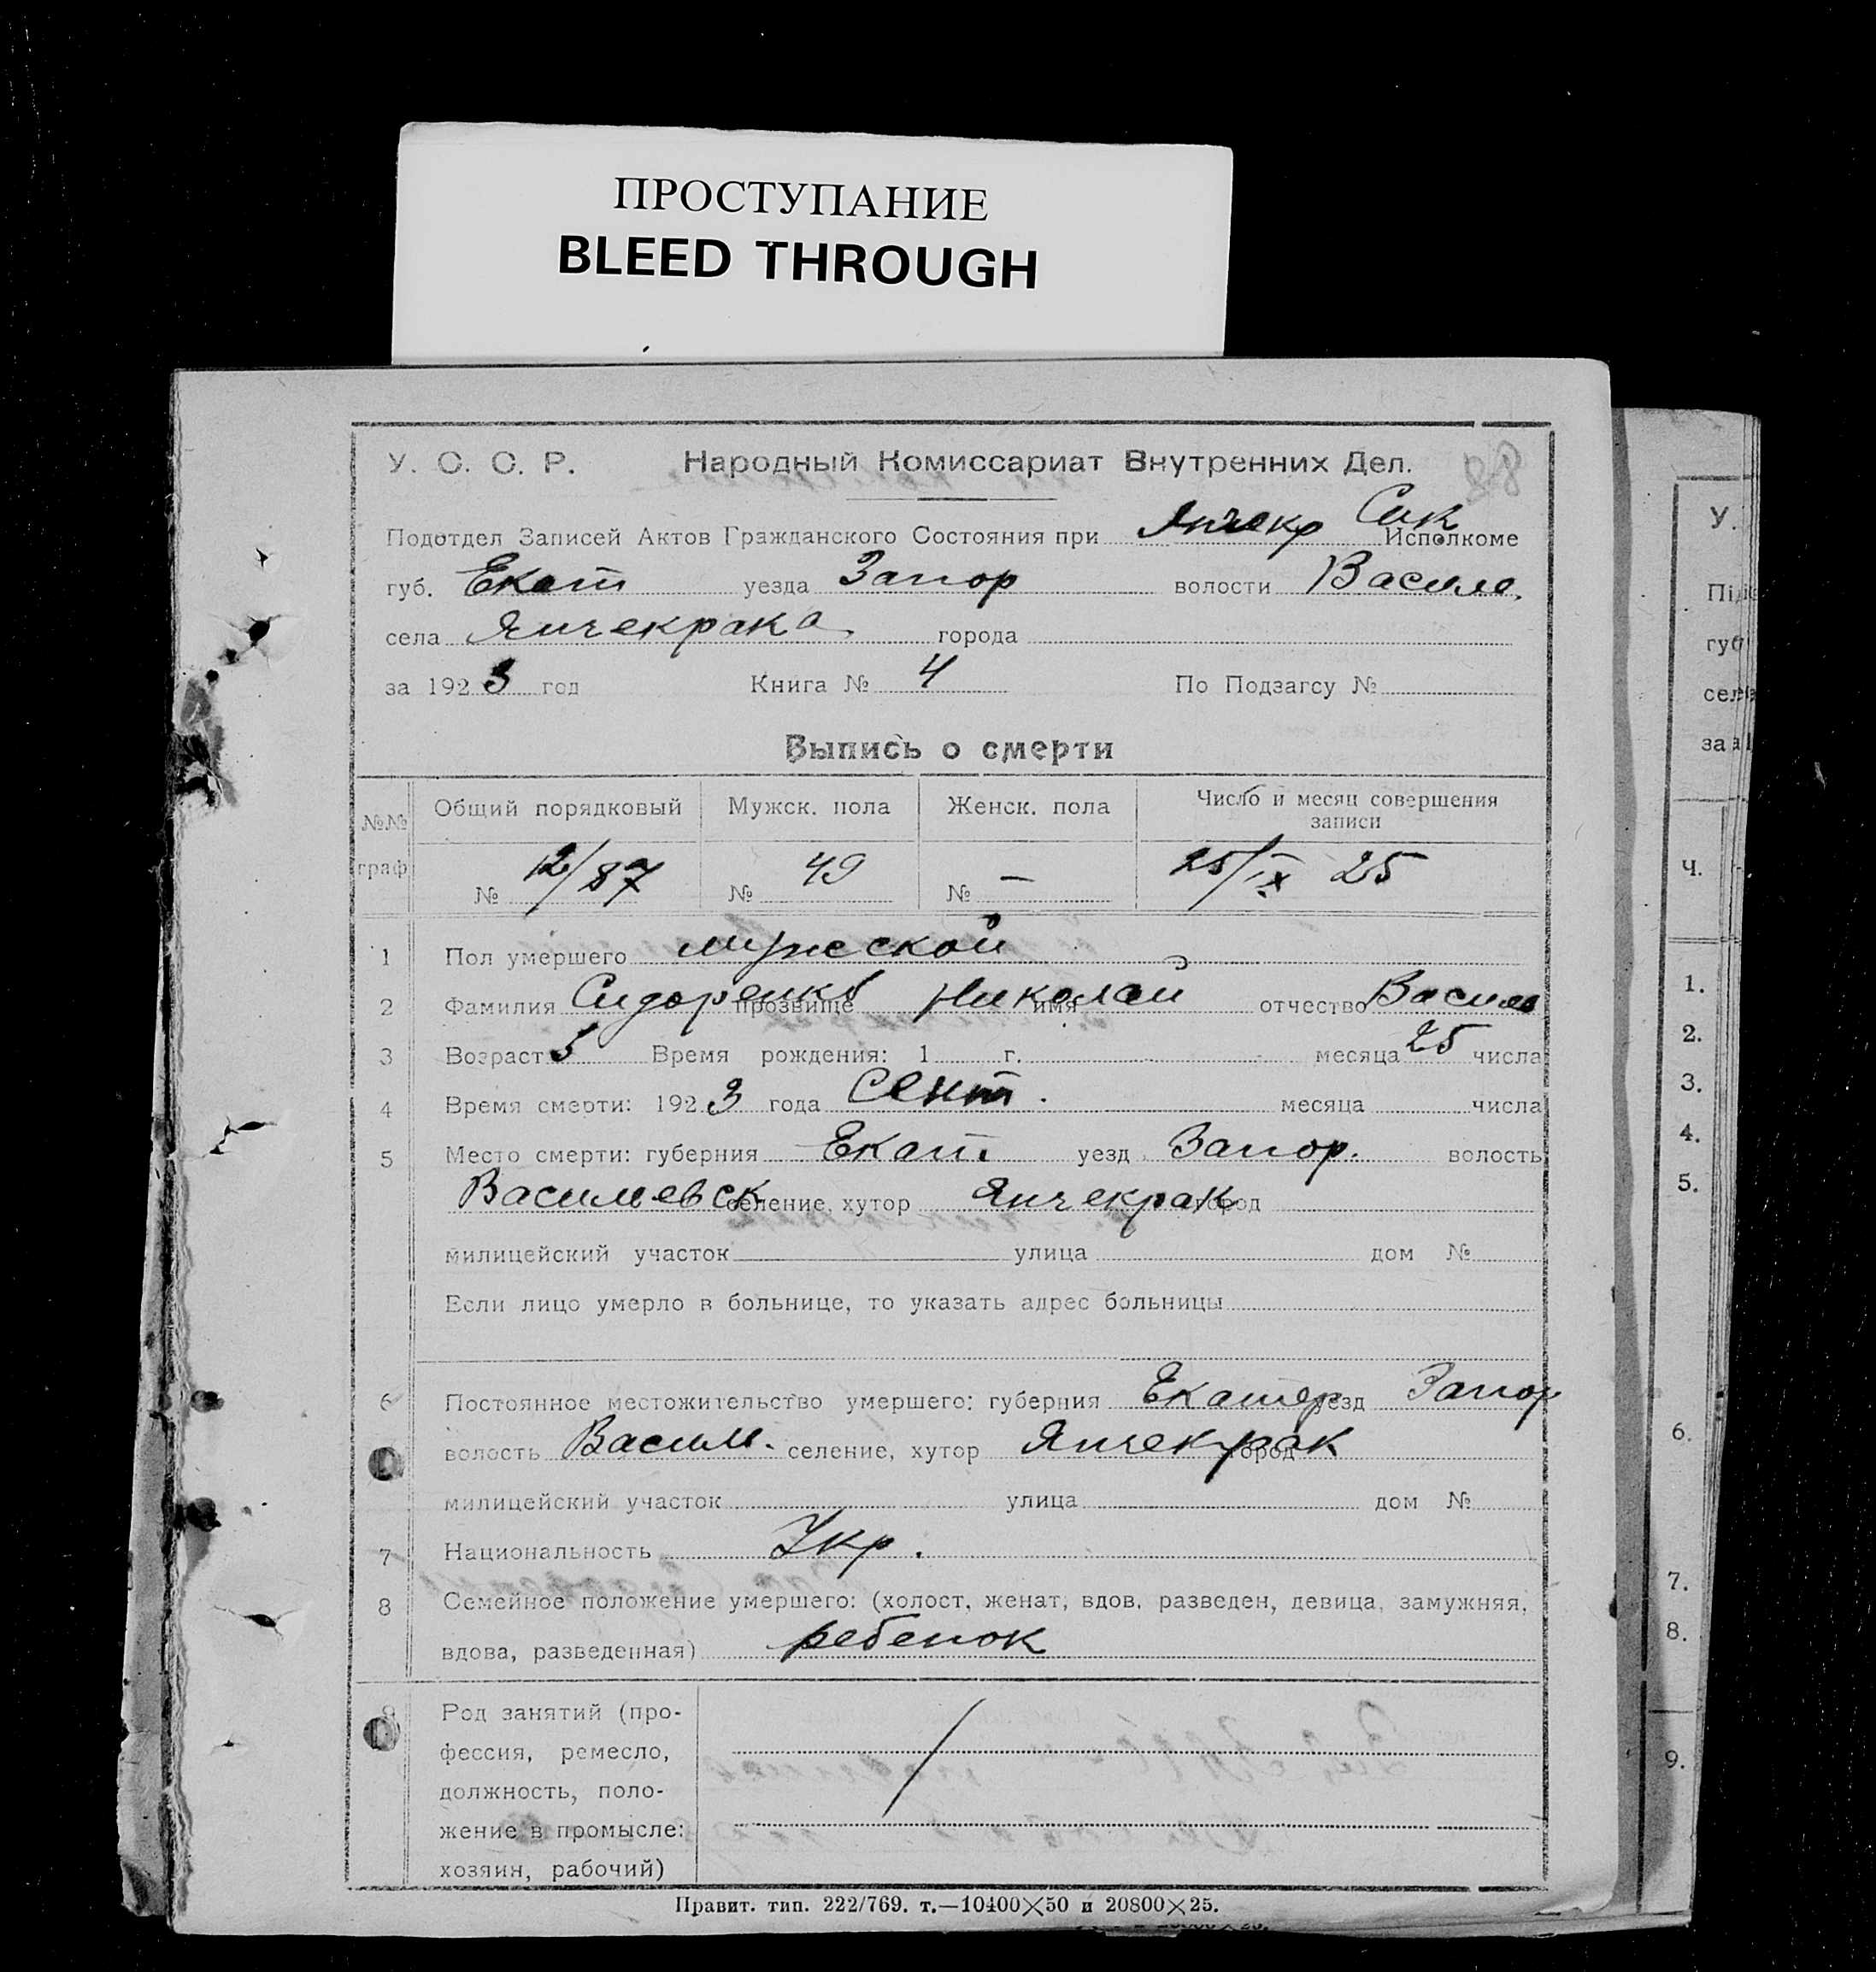 ПРОСТУПАНИЕ
BLEED THROUGH
У. С. С. Р. Народный Комиссариат Внутренних Дел.
Подотдел Записей Актов Гражданского Состояния при Янчекр Исполкоме
губ. Екат уезда Запор волости Василе.
села Янчекрака города
за 1923 год Книга № 4 По Подзагсу №
Выпись о смерти
№№ граф Общий порядковый Мужск. пола Женск. пола Число и месяц совершения записи
№ 12/87 № 49 № — 25/IX 25
1 Пол умершего мужской
2 Фамилия Сидоренко прозвище Николай имя отчество Василь
3 Возраст 5 Время рождения: 1 г. месяца 25 числа
4 Время смерти: 1923 года Сент. месяца числа
5 Место смерти: губерния Екат. уезд Запор. волость
Васильевск селение, хутор Янчекрак город
милицейский участок улица дом №
Если лицо умерло в больнице, то указать адрес больницы
6 Постоянное местожительство умершего: губерния Екатер уезд Запор
волость Василь. селение, хутор Янчекрак город
милицейский участок улица дом №
7 Национальность Укр.
8 Семейное положение умершего: (холост, женат, вдов, разведен, девица, замужняя,
вдова, разведенная) ребенок
9 Род занятий (про-
фессия, ремесло,
должность, поло-
жение в промысле:
хозяин, рабочий)
Правит. тип. 222/769. т.—10400×50 и 20800×25.
У.
Пі
губ
сел
за 1
Ч.
1.
2.
3.
4.
5.
6.
7.
8.
9.